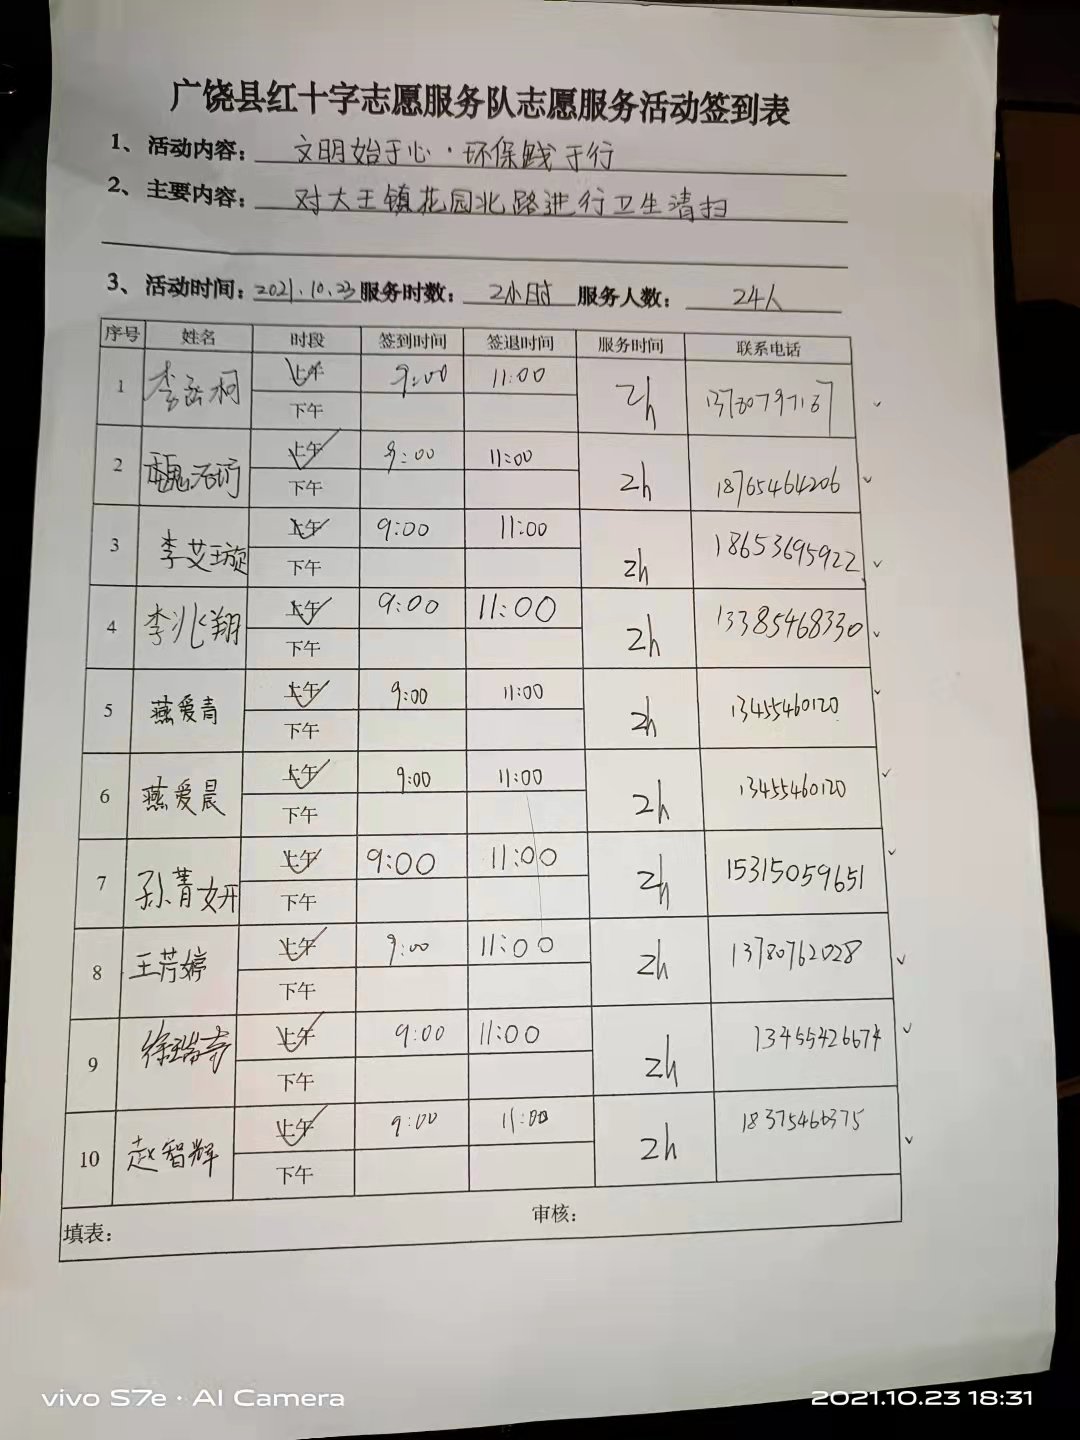 广饶县红十字志愿服务队志愿服务活动签到表
1、活动内容：文明始于心·环保践于行
2、主要内容：对大王镇花园北路进行卫生清扫
3、活动时间：2021.10.23 服务时数：2小时 服务人数：24人
序号 姓名 时段 签到时间 签退时间 服务时间 联系电话
1 上午 9:00 11:00 2h
下午
2 上午 9:00 11:00 2h 18765464206
下午
3 李艾璇 上午 9:00 11:00 2h 18653695922
下午
4 李兆翔 上午 9:00 11:00 2h 13385468330
下午
5 燕爱青 上午 9:00 11:00 2h 13455460120
下午
6 燕爱晨 上午 9:00 11:00 2h 13455460120
下午
7 孙菁妍 上午 9:00 11:00 2h 15315059651
下午
8 王芳婷 上午 9:00 11:00 2h 13780762028
下午
9 徐瑞奇 上午 9:00 11:00 2h 13455426674
下午
10 赵智辉 上午 9:00 11:00 2h 18375466375
下午
填表： 审核：
vivo S7e · AI Camera
2021.10.23 18:31